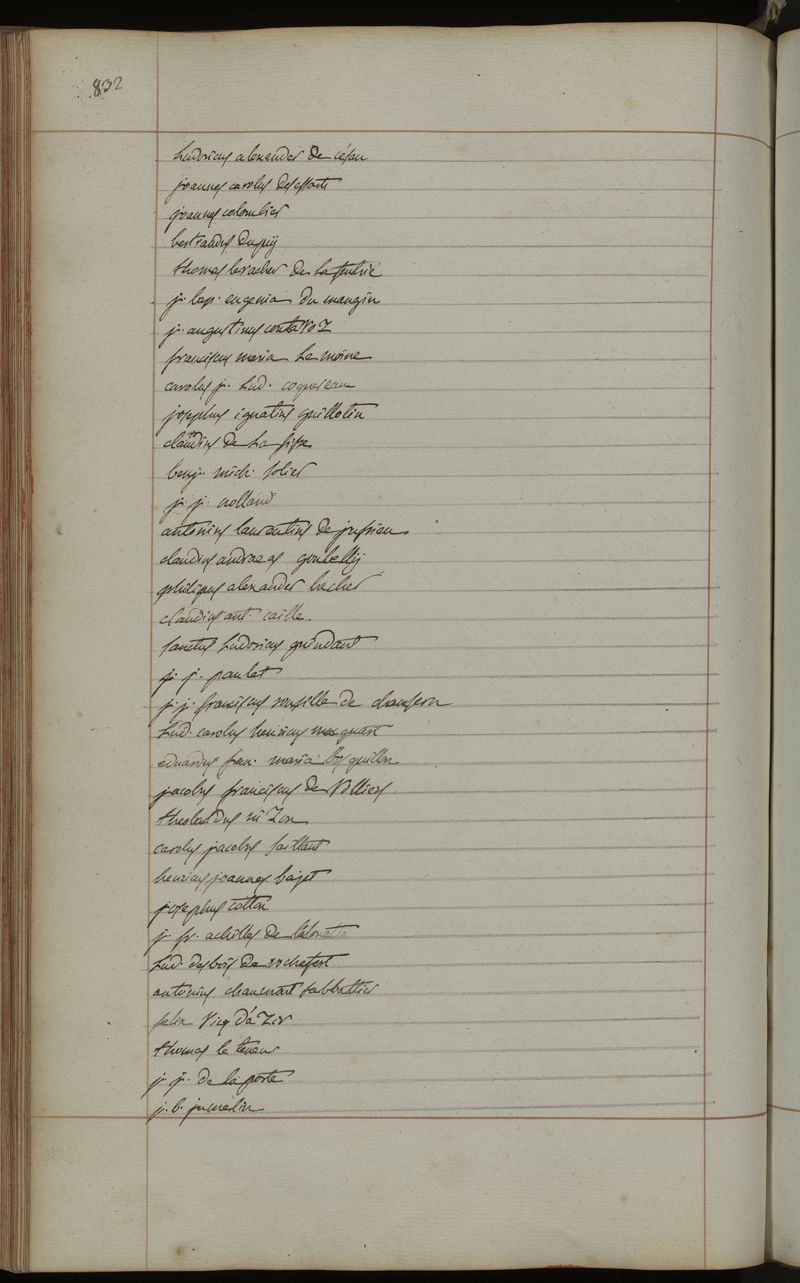 832
Ludovicus alexander de cézan
joannes carolus desessartz
joannes colombier
bertrandus dupuy
thomas levacher de la feutrie
j. bap. eugenia du mangin
j. augustinus coutavoz
franciscus maria Le moine
carolus j. Lud. coquereau
josephus ignatius guillotin
claudius de La fisse
benj. mich. solier
j. j. nolland
antonius laurentius de jussieu
claudius andraeas goubelly
philippus alexander bacher
claudius ant. caille
sanctus Ludovicus guindant
j. j. paulet
j. j. franciscus de chamseru
Lud. carolus henricus macquart
eduardus fran. maria bosquillon
jacobus franciscus de Villiers
theobaldus
carolus jacobus saillant
henricus joannes bajet
josephus cotton
j. fr. achilles de lalouette
Lud. desbois de rochefort
antonius chaumont sabbattier
felix Vicq d'aZir
thomas le teneur
j. j. de la porte
j. b. jumelin